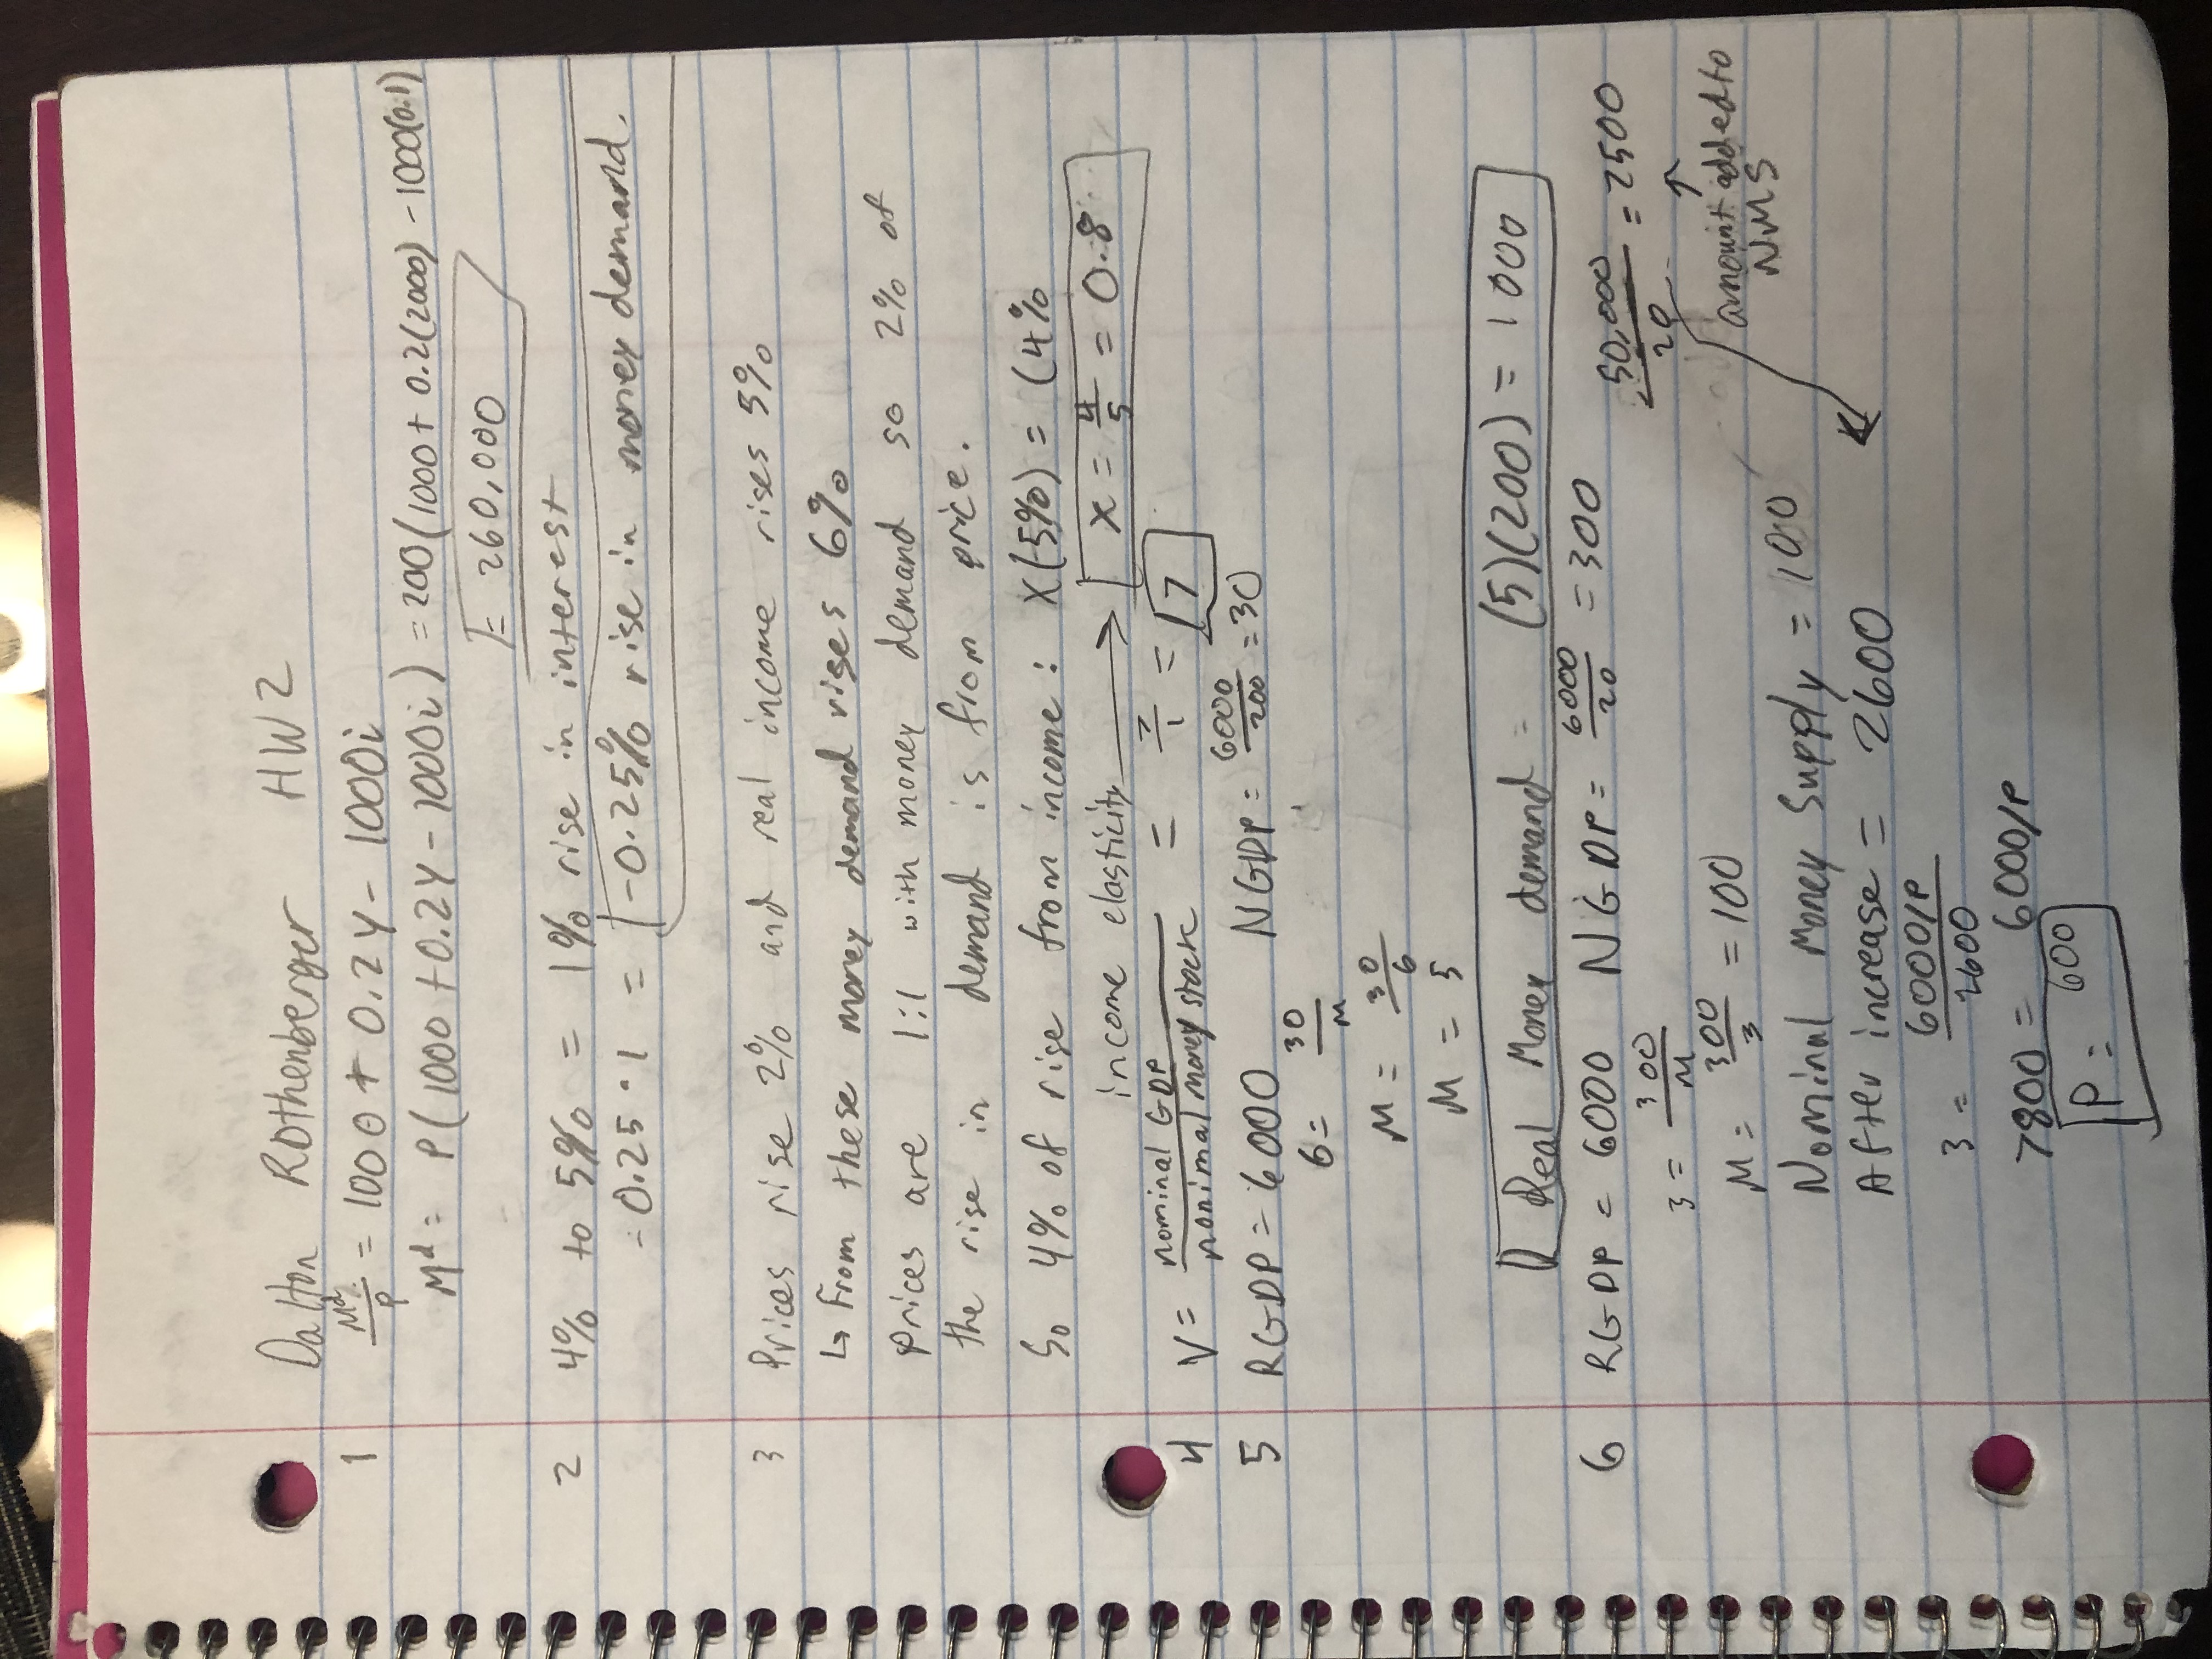 Dalton Rothenberger HW2
1 Md/P = 1000 + 0.2Y - 1000i
Md = P(1000 + 0.2Y - 1000i) = 200(1000 + 0.2(2000) - 1000(0.1)
= 260,000
2 4% to 5% = 1% rise in interest
-0.25 · 1 = -0.25% rise in money demand.
3 Prices rise 2% and real income rises 5%
↳ From these money demand rises 6%
Prices are 1:1 with money demand so 2% of
the rise in demand is from price.
So 4% of rise from income: X(5%) = (4%
income elasticity → X = 4/5 = 0.8
4 V = nominal GDP / nonimal money stock = 7/1 = 7
5 RGDP = 6000 NGDP = 6000/200 = 30
6 = 30/M
M = 30/6
M = 5
Real Money demand = (5)(200) = 1000
6 RGDP = 6000 NGDP = 6000/20 = 300
50,000/20 = 2500
3 = 300/M
↑
M = 300/3 = 100
amount added to
NMS
Nominal Money Supply = 100
After increase = 2600
3 = 6000/P / 2600
7800 = 6000/P
P = 600